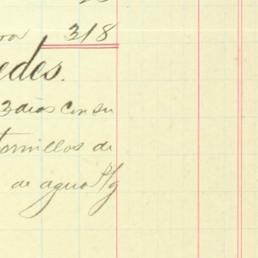 318
edes.
3 dias con su
tornillos de
de agua P/g